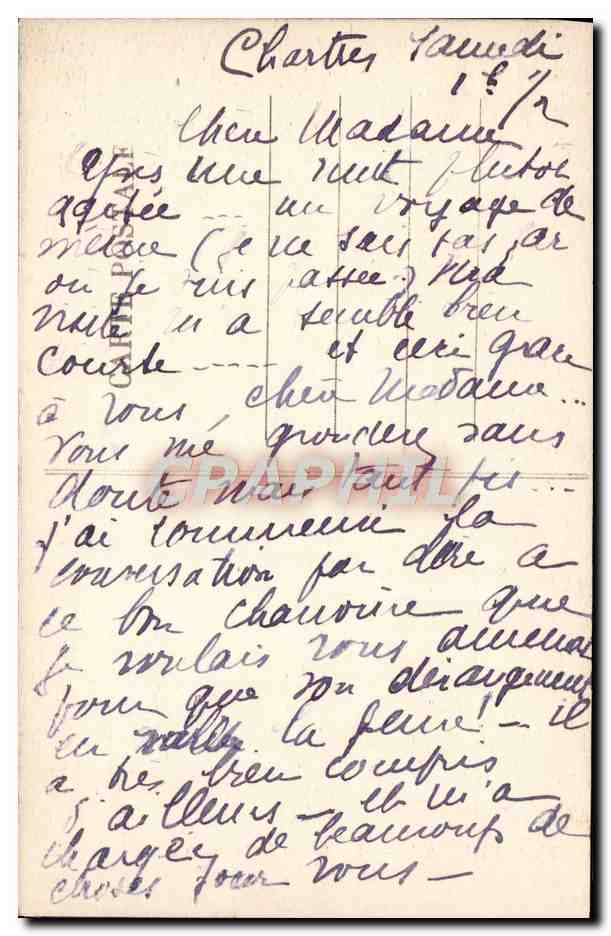 Chartres Samedi
1h 1/2
Chère Madame
Après une nuit plutôt
agitée ---- un voyage de
même (je ne sais pas par
où je suis passée) ma
visite m'a semblé bien
courte ---- et ceci grâce
à vous, chère Madame...
Vous me gronderez sans
doute mais tant pis...
j'ai commencé la
conversation par dire à
ce bon chanoine que
je voulais vous amener
pour que son dérangement
en vaille la peine! - il
a très bien compris
d'ailleurs - et m'a
chargée de beaucoup de
choses pour vous -
CARTE POSTALE
CPAPHIL